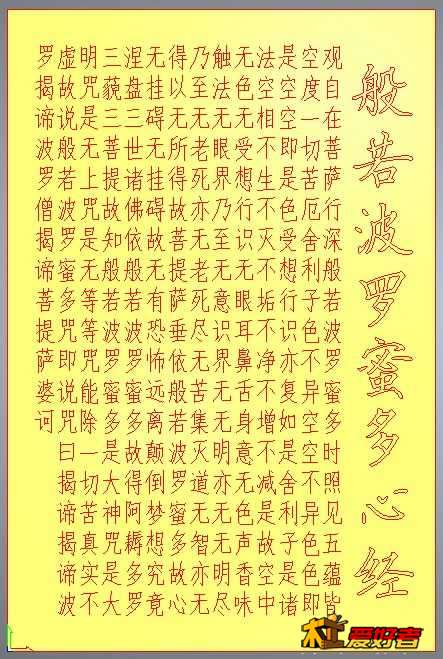 般若波罗蜜多心经
观自在菩萨行深般若波罗蜜多时照见五蕴皆
空度一切苦厄舍利子色不异空空不异色色即
是空空即是色受想行识亦复如是舍利子是诸
法空相不生不灭不垢不净不增不减是故空中
无色无受想行识无眼耳鼻舌身意无色声香味
触法无眼界乃至无意识界无无明亦无无明尽
乃至无老死亦无老死尽无苦集灭道无智亦无
得以无所得故菩提萨垂依般若波罗蜜多故心
无挂碍无挂碍故无有恐怖远离颠倒梦想究竟
涅盘三世诸佛依般若波罗蜜多故得阿耨多罗
三藐三菩提故知般若波罗蜜多是大神咒是大
明咒是无上咒是无等等咒能除一切苦真实不
虚故说般若波罗蜜多咒即说咒曰揭谛揭谛波
罗揭谛波罗僧揭谛菩提萨婆诃
爱好者